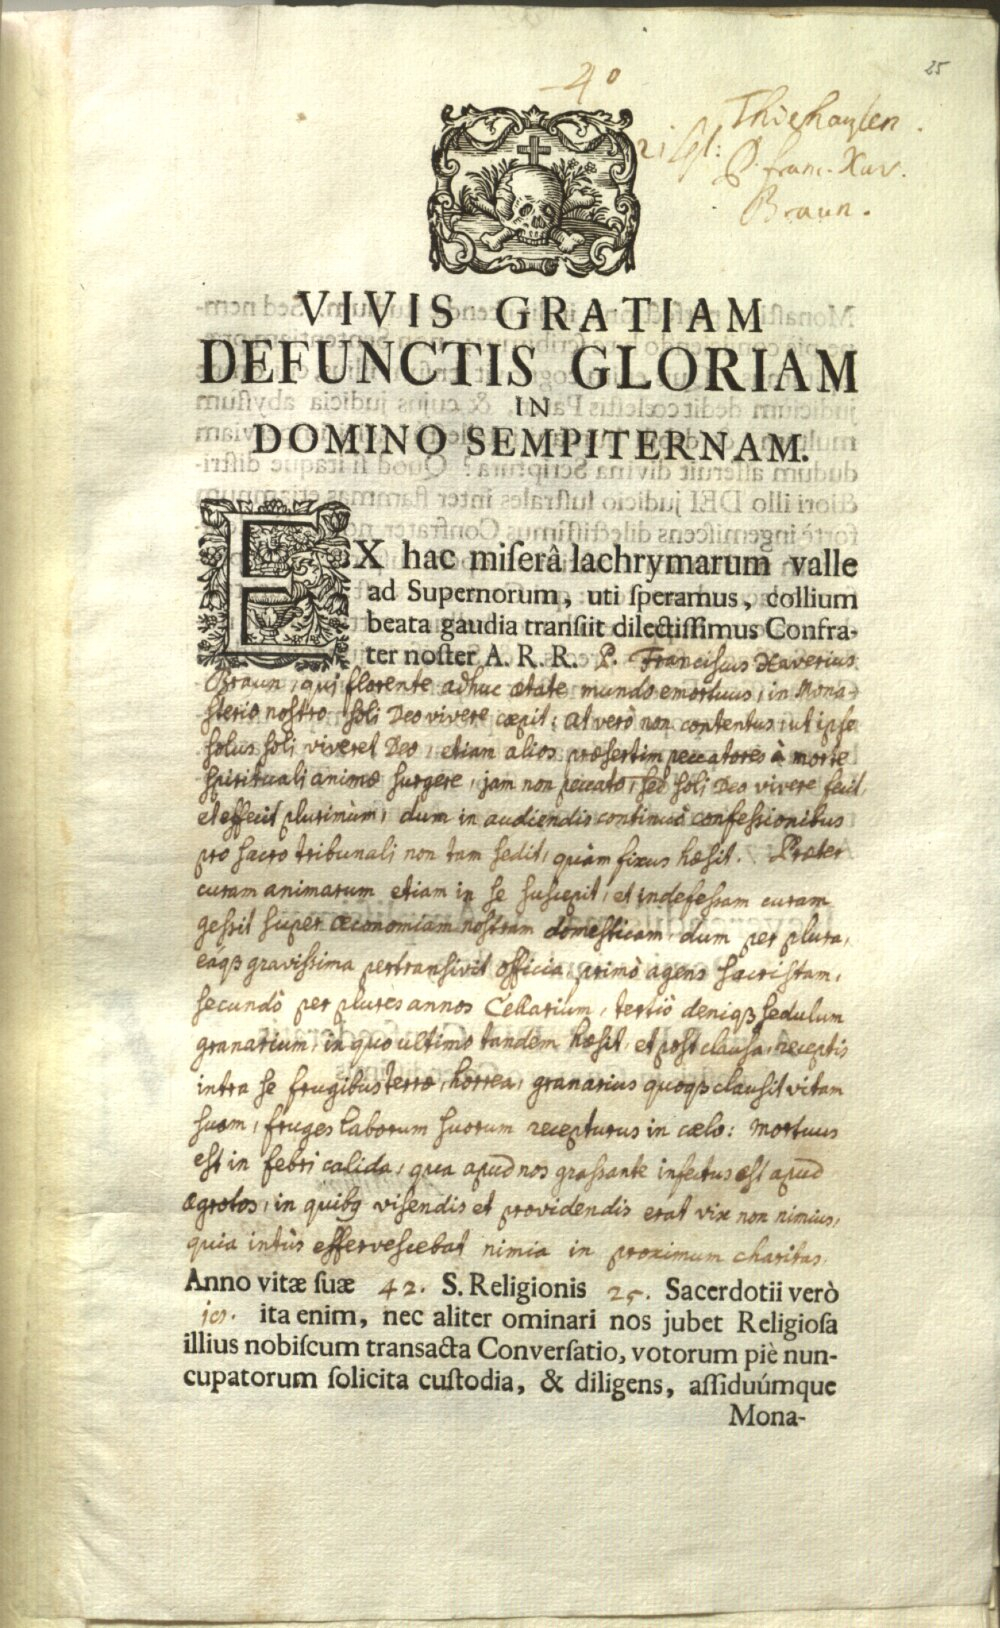 25
4°
Thiehaupten.
P. Franc. Xav.
Braun.
VIVIS GRATIAM
DEFUNCTIS GLORIAM
IN
DOMINO SEMPITERNAM.
EX hac miserâ lachrymarum valle
ad Supernorum, uti speramus, collium
beata gaudia transiit dilectissimus Confra-
ter noster A. R. R. P. Franciscus Xaverius
Braun, qui florente adhuc ætate mundo emortuus, in Mona-
sterio nostro soli Deo vivere cæpit; at verò non contentus, ut ipse
solus soli viveret Deo, etiam alios præsertim peccatores à morte
spirituali animæ surgere, jam non peccato, sed soli Deo vivere fecit,
et effecit plurimùm, dum in audiendis continuò confessionibus
pro sacro tribunali non tam sedit, quàm fixus hæsit. Præter
curam animarum etiam in se suscepit, et indefessam curam
gessit super œconomiam nostram domesticam, dum per plura,
eaqꝫ gravissima pertransivit officia, primò agens Sacristam,
secundò per plures annos Cellarium, tertiò deniqꝫ sedulum
granarium, in quo ultimo tandem hæsit, et post clausa, receptis
intra se frugibus terræ, horrea, granarius quoqꝫ clausit vitam
suam, fruges laborum suorum recepturus in cælo: Mortuus
est in febri calida, qua apud nos grassante infectus est apud
ægrotos, in quibꝫ visendis et providendis erat vix non nimius,
quia intùs effervescebat nimia in proximum charitas.
Anno vitæ suæ 42. S. Religionis 25. Sacerdotii verò
ita enim, nec aliter ominari nos jubet Religiosa
illius nobiscum transacta Conversatio, votorum piè nun-
cupatorum solicita custodia, & diligens, assiduúmque
Mona-